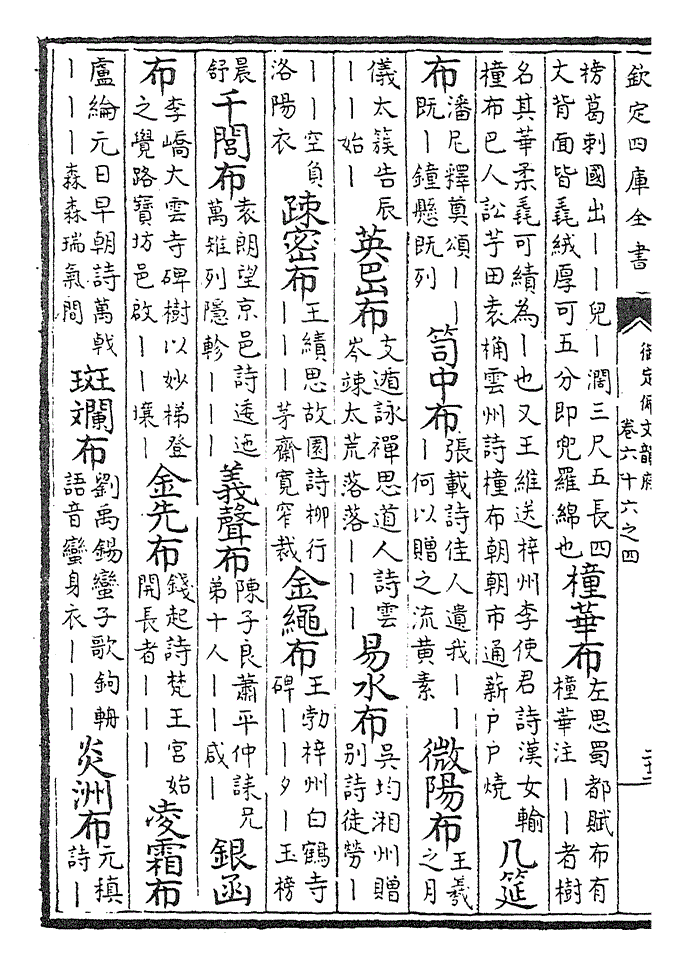 欽定四庫全書
御定佩文韻府
卷六十六之四
榜葛刺國出｜｜兜｜濶三尺五長四
丈背面皆毳絨厚可五分即兜羅綿也
橦華布
左思蜀都賦布有
橦華注｜｜者樹
名其華柔毳可績為｜也又王維送梓州李使君詩漢女輸
橦布巴人訟芋田袁桷雲州詩橦布朝朝市通薪户户燒
几筵
布
潘尼釋奠頌｜｜
既｜鐘懸既列
笥中布
張載詩佳人遺我｜｜
｜何以贈之流黄素
微陽布
王羲
之月
儀太簇告辰
｜｜始｜
英 布
支遁詠禪思道人詩雲
岑竦太荒落落｜｜｜
易水布
吳均湘州贈
別詩徒勞｜
｜｜空負
洛陽衣
疎密布
王績思故園詩柳行
｜｜｜茅齋寛窄裁
金繩布
王勃梓州白鶴寺
碑｜｜夕｜玉榜
晨
舒
千閭布
袁朗望京邑詩逶迤
萬雉列隱軫｜｜｜
義聲布
陳子良蕭平仲誄兄
弟十人｜｜咸｜
銀函
布
李嶠大雲寺碑樹以妙梯登
之覺路寶坊邑啟｜｜壤｜
金先布
錢起詩梵王宫始
開長者｜｜｜
凌霜布
盧綸元日早朝詩萬戟
｜｜｜森森瑞氣間
斑斕布
劉禹錫蠻子歌鉤輈
語音蠻身衣｜｜｜
炎洲布
元稹
詩｜